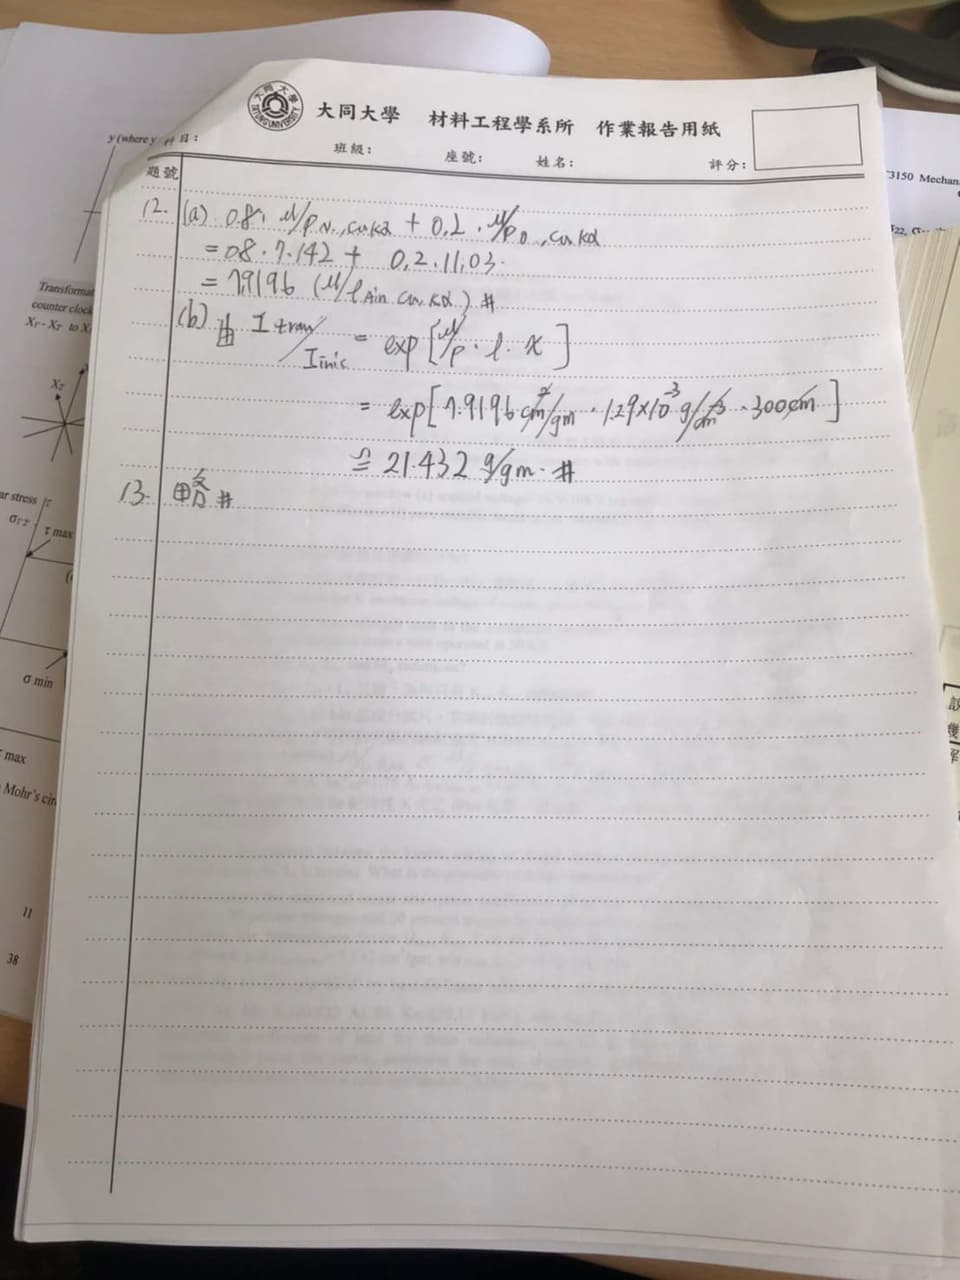 大同大學 材料工程學系所 作業報告用紙
科目：
班級： 座號： 姓名： 評分：
題號
12. (a) 0.8・μ/ρ N, Cu Kα + 0.2・μ/ρ O, Cu Kα
= 0.8・7.142 + 0.2・11.03
= 7.9196 (μ/ρ Air Cu, Kα) #
(b) 由 I tran/I inic = exp[μ/ρ・ρ・x]
= exp[7.9196 cm²/gm・1.29×10⁻³ g/cm³・300cm]
≅ 21.432 g/gm. #
13. 略#
y (where y
Transformat
counter clock
X₁' - X₂' to X₁
X₂
ar stress τ
σ₁'₂' τ max
σ min
τ max
Mohr's cir
11
38
3150 Mechan